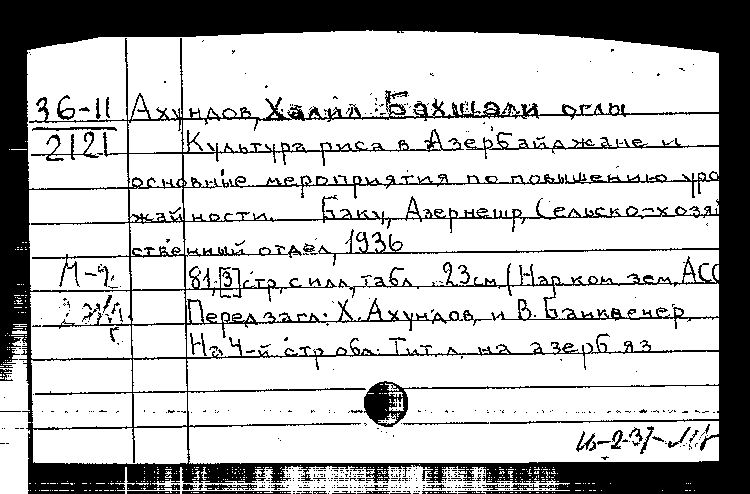 36-11 Ахундов, Халил Бахшали оглы
2121 Культура риса в Азербайджане и
основные мероприятия по повышению уро
жайности. Баку, Азернешр, Сельско-хозяй
ственный отдел, 1936
М-ч. 81,[3] стр, с илл, табл. 23см (Нарком зем, АСС
2 экз. Перед загл: Х. Ахундов, и В. Банквенер,
На 4-й стр обл: Тит. л. на азерб яз
16-2-37